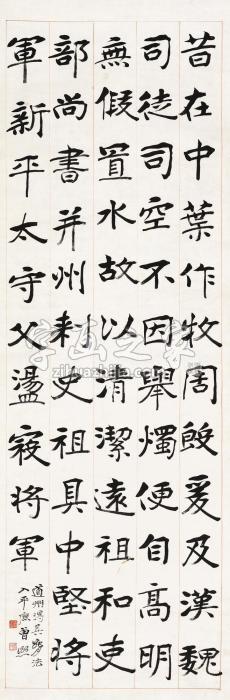 昔在中葉作牧周殷爰及漢魏
司徒司空不因舉燭便自高明
無假置水故以清潔遠祖和吏
部尚書并州刾史祖具中堅將
軍新平太守父盪寇將軍
道州法
曾熙